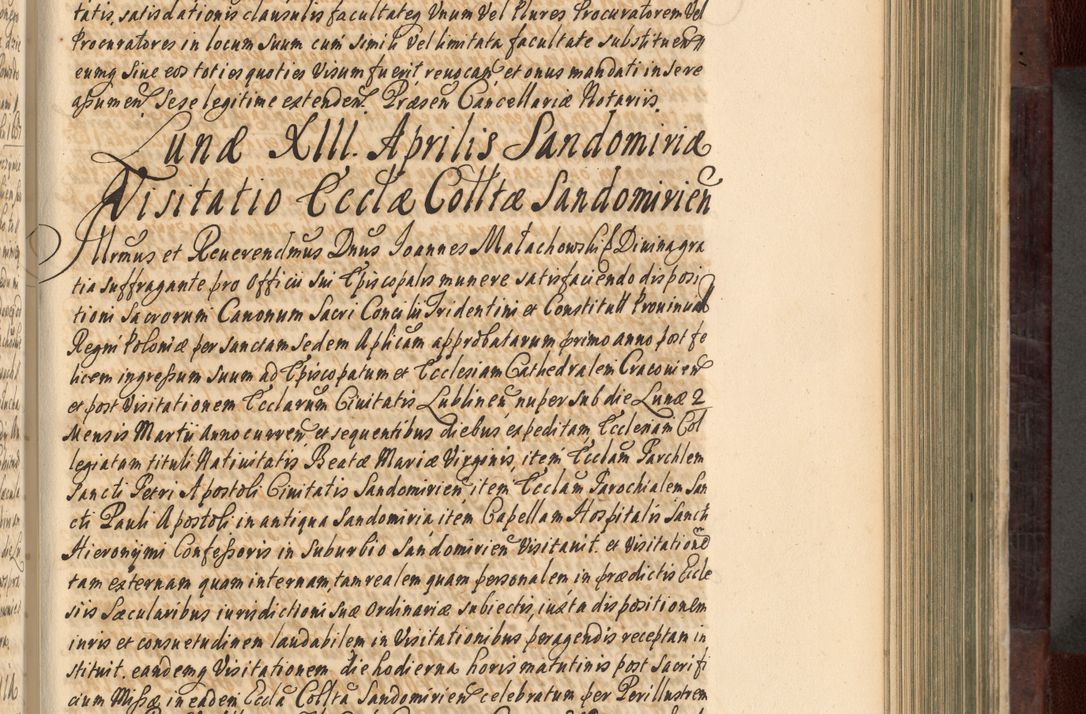 tatis, satisdationis clausulis facultateq Unum Vel Plures Procuratorem Vel
Procuratores in locum suum cum simili Vel limitata facultate substituen
eumq Siue eos toties quoties Visum fuerit reuocan et onus mandati in se re
assumen Sese legitime extenden Præsen Cancellariæ Notariis.
Lunæ XIII. Aprilis Sandomiriæ
Visitatio Ecclæ Colltæ Sandomirien
Illrmus et Reuerendmus Dnus Ioannes Małachowski Diuina gra
tia suffragante pro Officii sui Episcopalis munere satisfaciendo disposi
tioni Sacrorum Canonum Sacri Concilii Tridentini et Constitutt Prouincial
Regni Poloniæ per sanctam sedem Aplicam approbatarum primo anno post fe
licem ingressum suum ad Episcopatum et Ecclesiam Cathedralem Cracouien
et post Visitationem Ecclarum Ciuitatis Lublinen nuper sub die Lunæ 2
Mensis Martii Anno curren et sequentibus diebus expeditam Ecclesiam Col
legiatam tituli Natiuitatis Beatæ Mariæ Virginis, item Ecclam Parchlem
Sancti Petri Apostoli Ciuitatis Sandomirien item Ecclam Parochialem San
cti Pauli Apostoli in antiqua Sandomiria item Capellam Hospitalis Sancti
Hieronymi Confessoris in Suburbio Sandomirien Visitauit. et Visitatione
tam externam quam internam, tam realem quam personalem in prædictis Eccle
siis Sæcularibus iurisdictioni suæ Ordinariæ subiectis, iuxta dispositionem
iuris et consuetudinem laudabilem in Visitationibus peragendis receptam in
stituit. eandemq Visitationem die hodierna horis matutinis post Sacrifi
cium Missæ in eadem Eccla Collta Sandomirien celebratum per Perillustrem